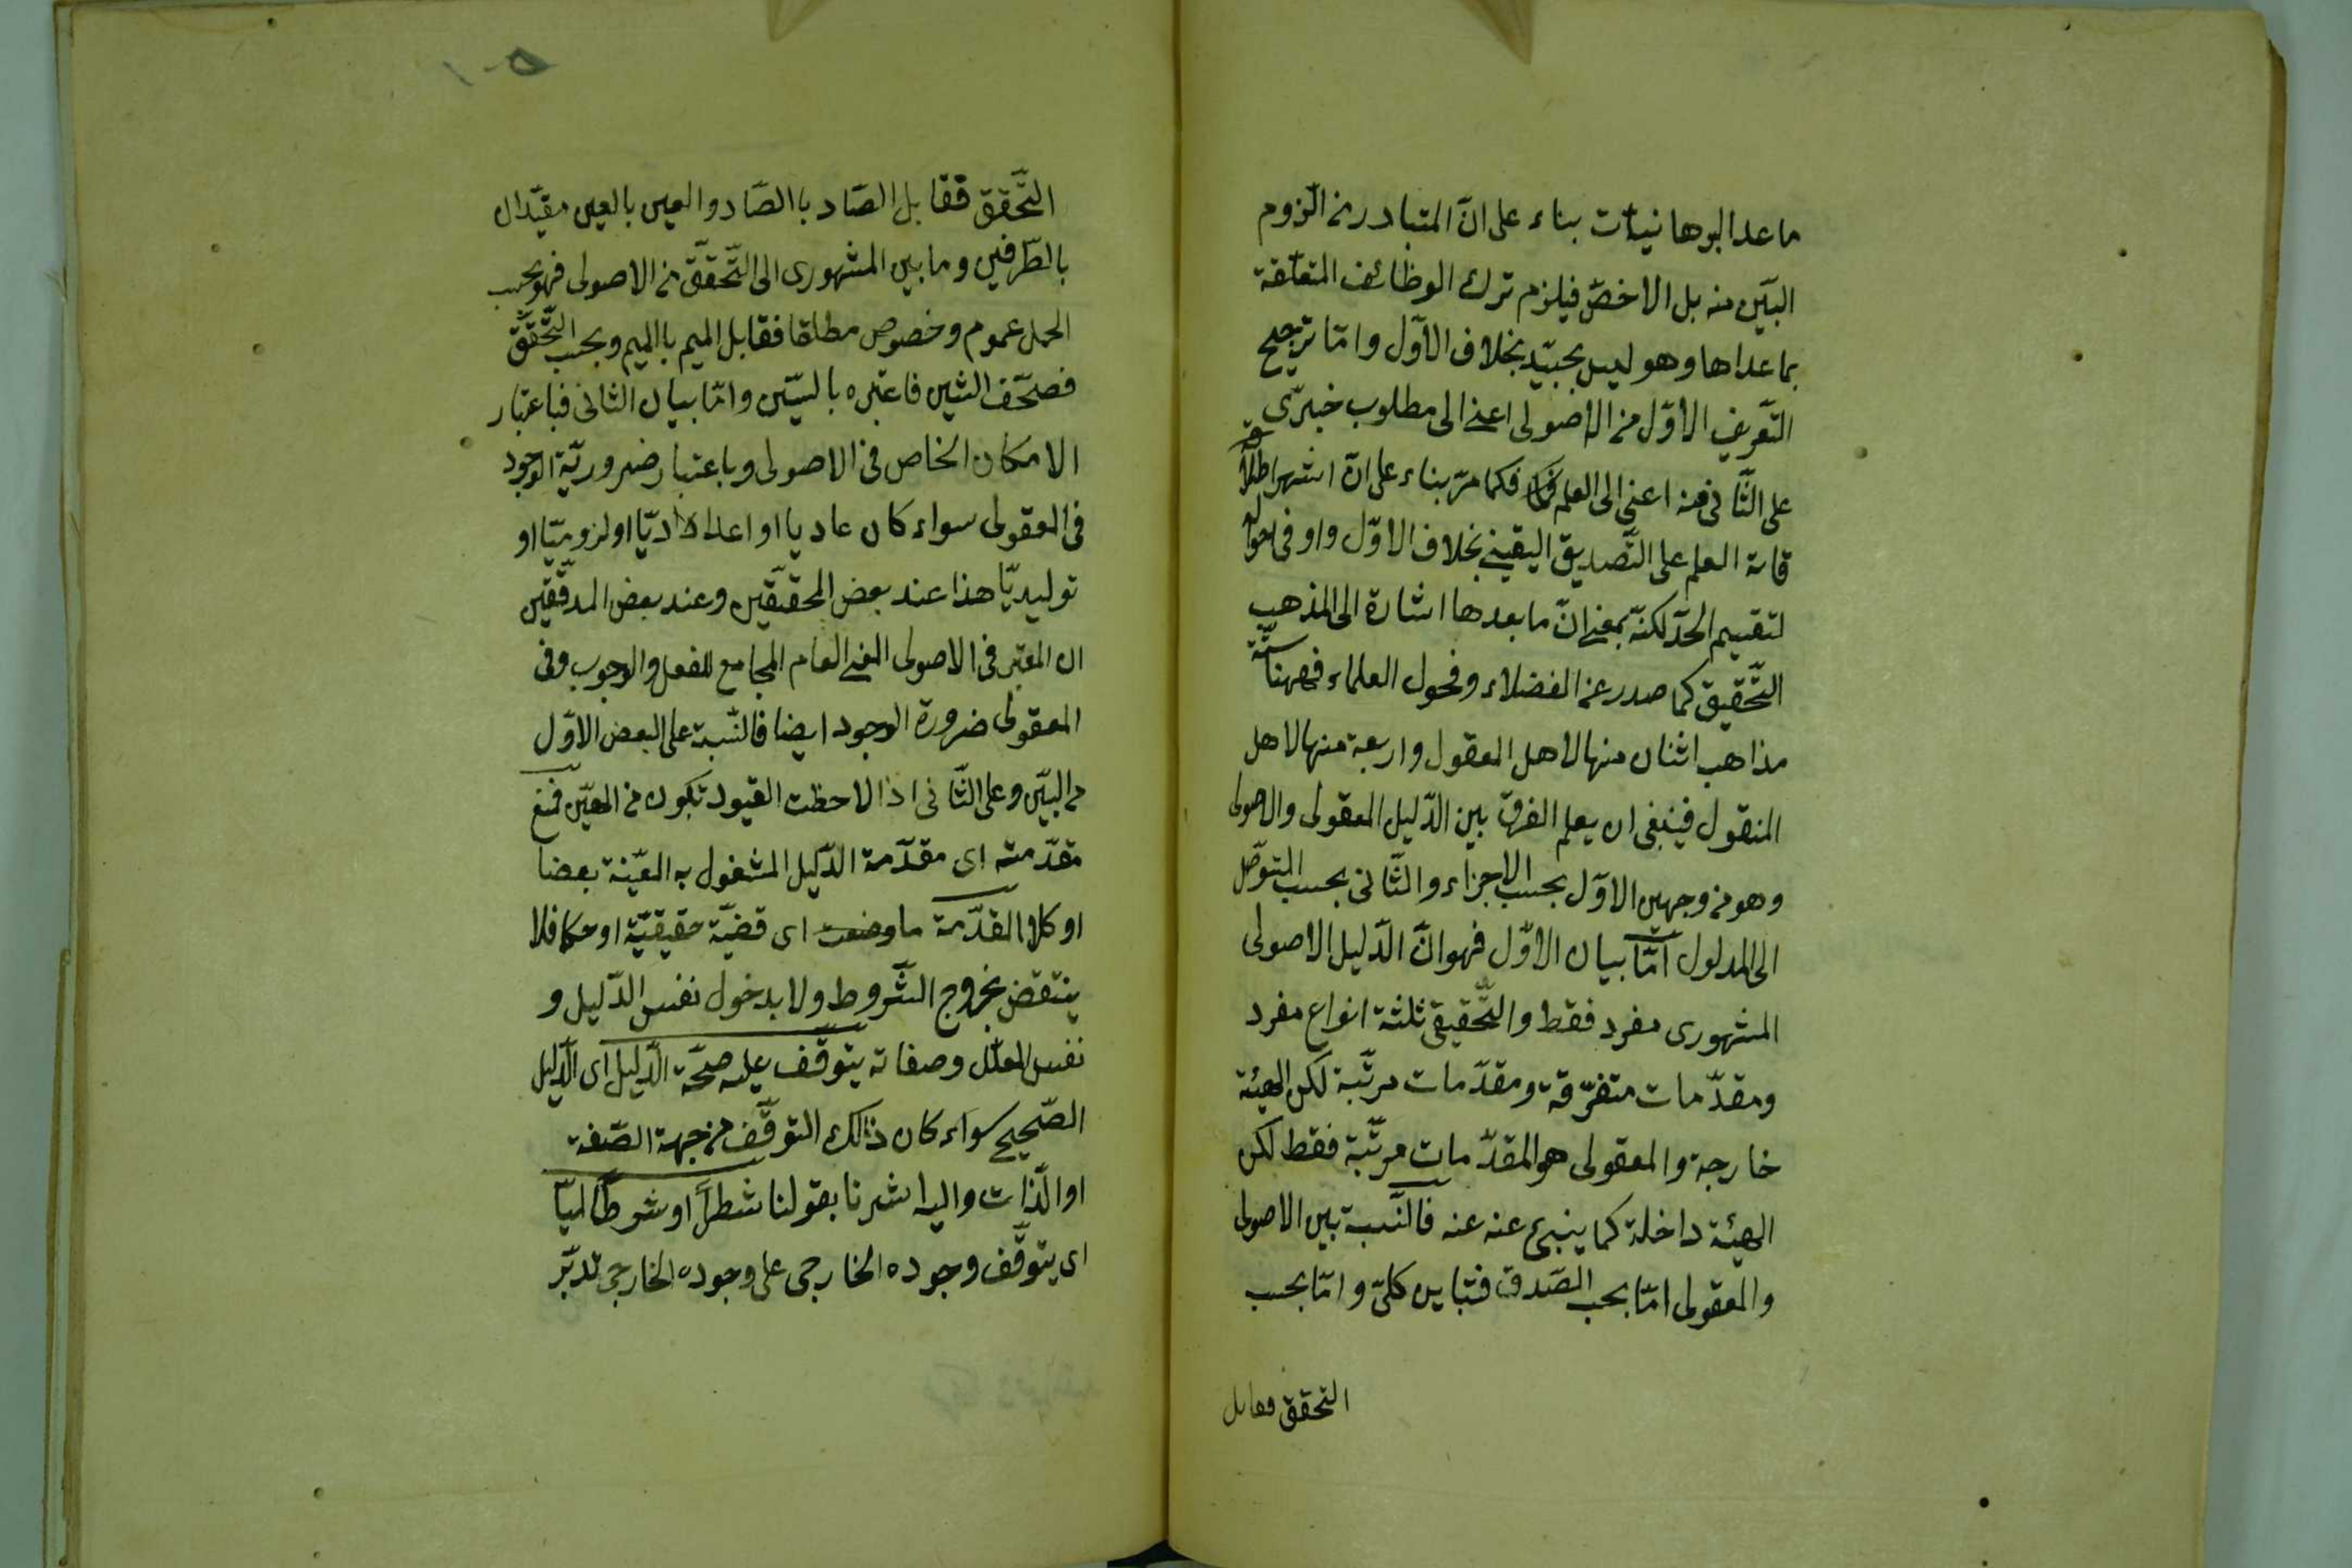 ما عدا البرهانيات بناء على انّ المتبادر من اللزوم
البيّن منه بل الاخصّ فيلزم ترك الوظائف المتعلّقة
بما عداها وهو ليس بجيّد بخلاف الاوّل وامّا ترجيح
التّعريف الاوّل من الاصولى اعنى الى مطلوب خبرىّ
على الثّانى منه اعنى الى العلم فكما مرّ بناء على انّ اشهر اطلاق
العلم على التّصديق اليقينى بخلاف الاوّل واو فى
لتقسيم الحدّ لكنّه بمعنى انّ ما بعدها اشارة الى المذهب
التّحقيق كما صدر عن الفضلاء وفحول العلماء فههنا ستّة
مذاهب اثنان منها لاهل المعقول واربعة منها لاهل
المنقول فينبغى ان يعلم الفرق بين الدّليل المعقولى والاصولى
وهو من وجهين الاوّل بحسب الاجزاء والثّانى بحسب التوصّل
الى المدلول امّا بيان الاوّل فهو انّ الدّليل الاصولى
المشهورى مفرد فقط والتّحقيقى ثلثة انواع مفرد
ومقدّمات متفرّقة ومقدّمات مرتّبة لكن الهيئة
خارجة والمعقولى هو المقدّمات مرتّبة فقط لكن
الهيئة داخلة كما ينبئ عنه عنه فالنّسبة بين الاصولى
والمعقولى امّا بحسب الصّدق فتباين كلىّ وامّا بحسب
التحقق فقابل
التّحقق فقابل الصّاد باالصّاد والعين بالعين مقيّدان
بالطّرفين وما بين المشهورى الى التّحقّق من الاصولى فهو بحسب
الحمل عموم وخصوص مطلقا فقابل الميم باالميم وبحسب التّحقّق
فصحّف الشين فاعتبره بالسّين وامّا بيان الثانى فباعتبار
الامكان الخاص فى الاصولى وباعتبار ضروريّة الوجود
فى المعقولى سواء كان عاديا او اعداديّا او لزوميّا او
توليديّا هذا عند بعض المحقّقين وعند بعض المدقّقين
ان المعتبر فى الاصولى المعنى العام المجامع للفعل والوجوب وفى
المعقولى ضرورة الوجود ايضا فالنّسبة على البعض الاوّل
من البيّن وعلى الثّانى اذا لاحظت القيود تكون من المعيّن فمنع
مقدّمته اى مقدّمة الدّليل المشغول به المعيّنة بعضا
او كلا المقدّمة ما وضعت اى قضيّة حقيقيّة او حكما فلا
ينتقض بخروج الشّروط ولا بدخول نفس الدّليل و
نفس المعلّل وصفاته يتوقّف عليه صحّة الدّليل اى الدّليل
الصّحيح سواء كان ذالك التوقّف من جهة الصّفة
او الذّات واليه اشرنا بقولنا شطراً او شرطاً
اى يتوقّف وجوده الخارجى على وجوده الخارجى تدبّر